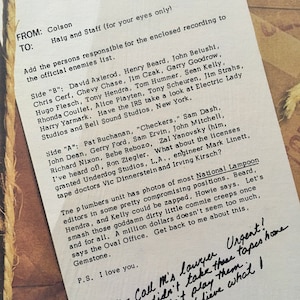 FROM: Colson
TO: Haig and Staff (for your eyes only)
Add the persons responsible for the enclosed recording to
the official enemies list.
Side "B": David Axlerod, Henry Beard, John Belushi,
Chris Cerf, Chevy Chase, Jim Czak, Garry Goodrow,
Hugo Flesch, Tony Hendra, Tom Hummer, Sean Kelly,
Rhonda Coullet, Alice Playten, Tony Scheuren, Jim Strahs,
Harry Yarmark. Have the IRS take a look at Electric Lady
Studios and Bell Sound Studios, New York.
Side "A": Pat Buchanan, "Checkers," Sam Dash,
John Dean, Gerry Ford, Sam Ervin, John Mitchell,
Richard Nixon, Bebe Rebozo, Zal Yanovsky (him,
I've heard of), Ron Ziegler. What about the licenses
granted Underdog Studios, L.A., engineer Mark Linett,
tape doctors Vic Dinnerstein and Irving Kirsch?
The plumbers unit has photos of most National Lampoon
editors in some pretty compromising positions. Beard,
Hendra, and Kelly could be zapped, Howie says. Let's
smash those goddamn dirty little commie creeps once
and for all. A million dollars doesn't seem too much,
says the Oval Office. Get back to me about this,
Gemstone.
P.S. I love you.
Call M's lawyer Urgent!
take these tapes home
play them